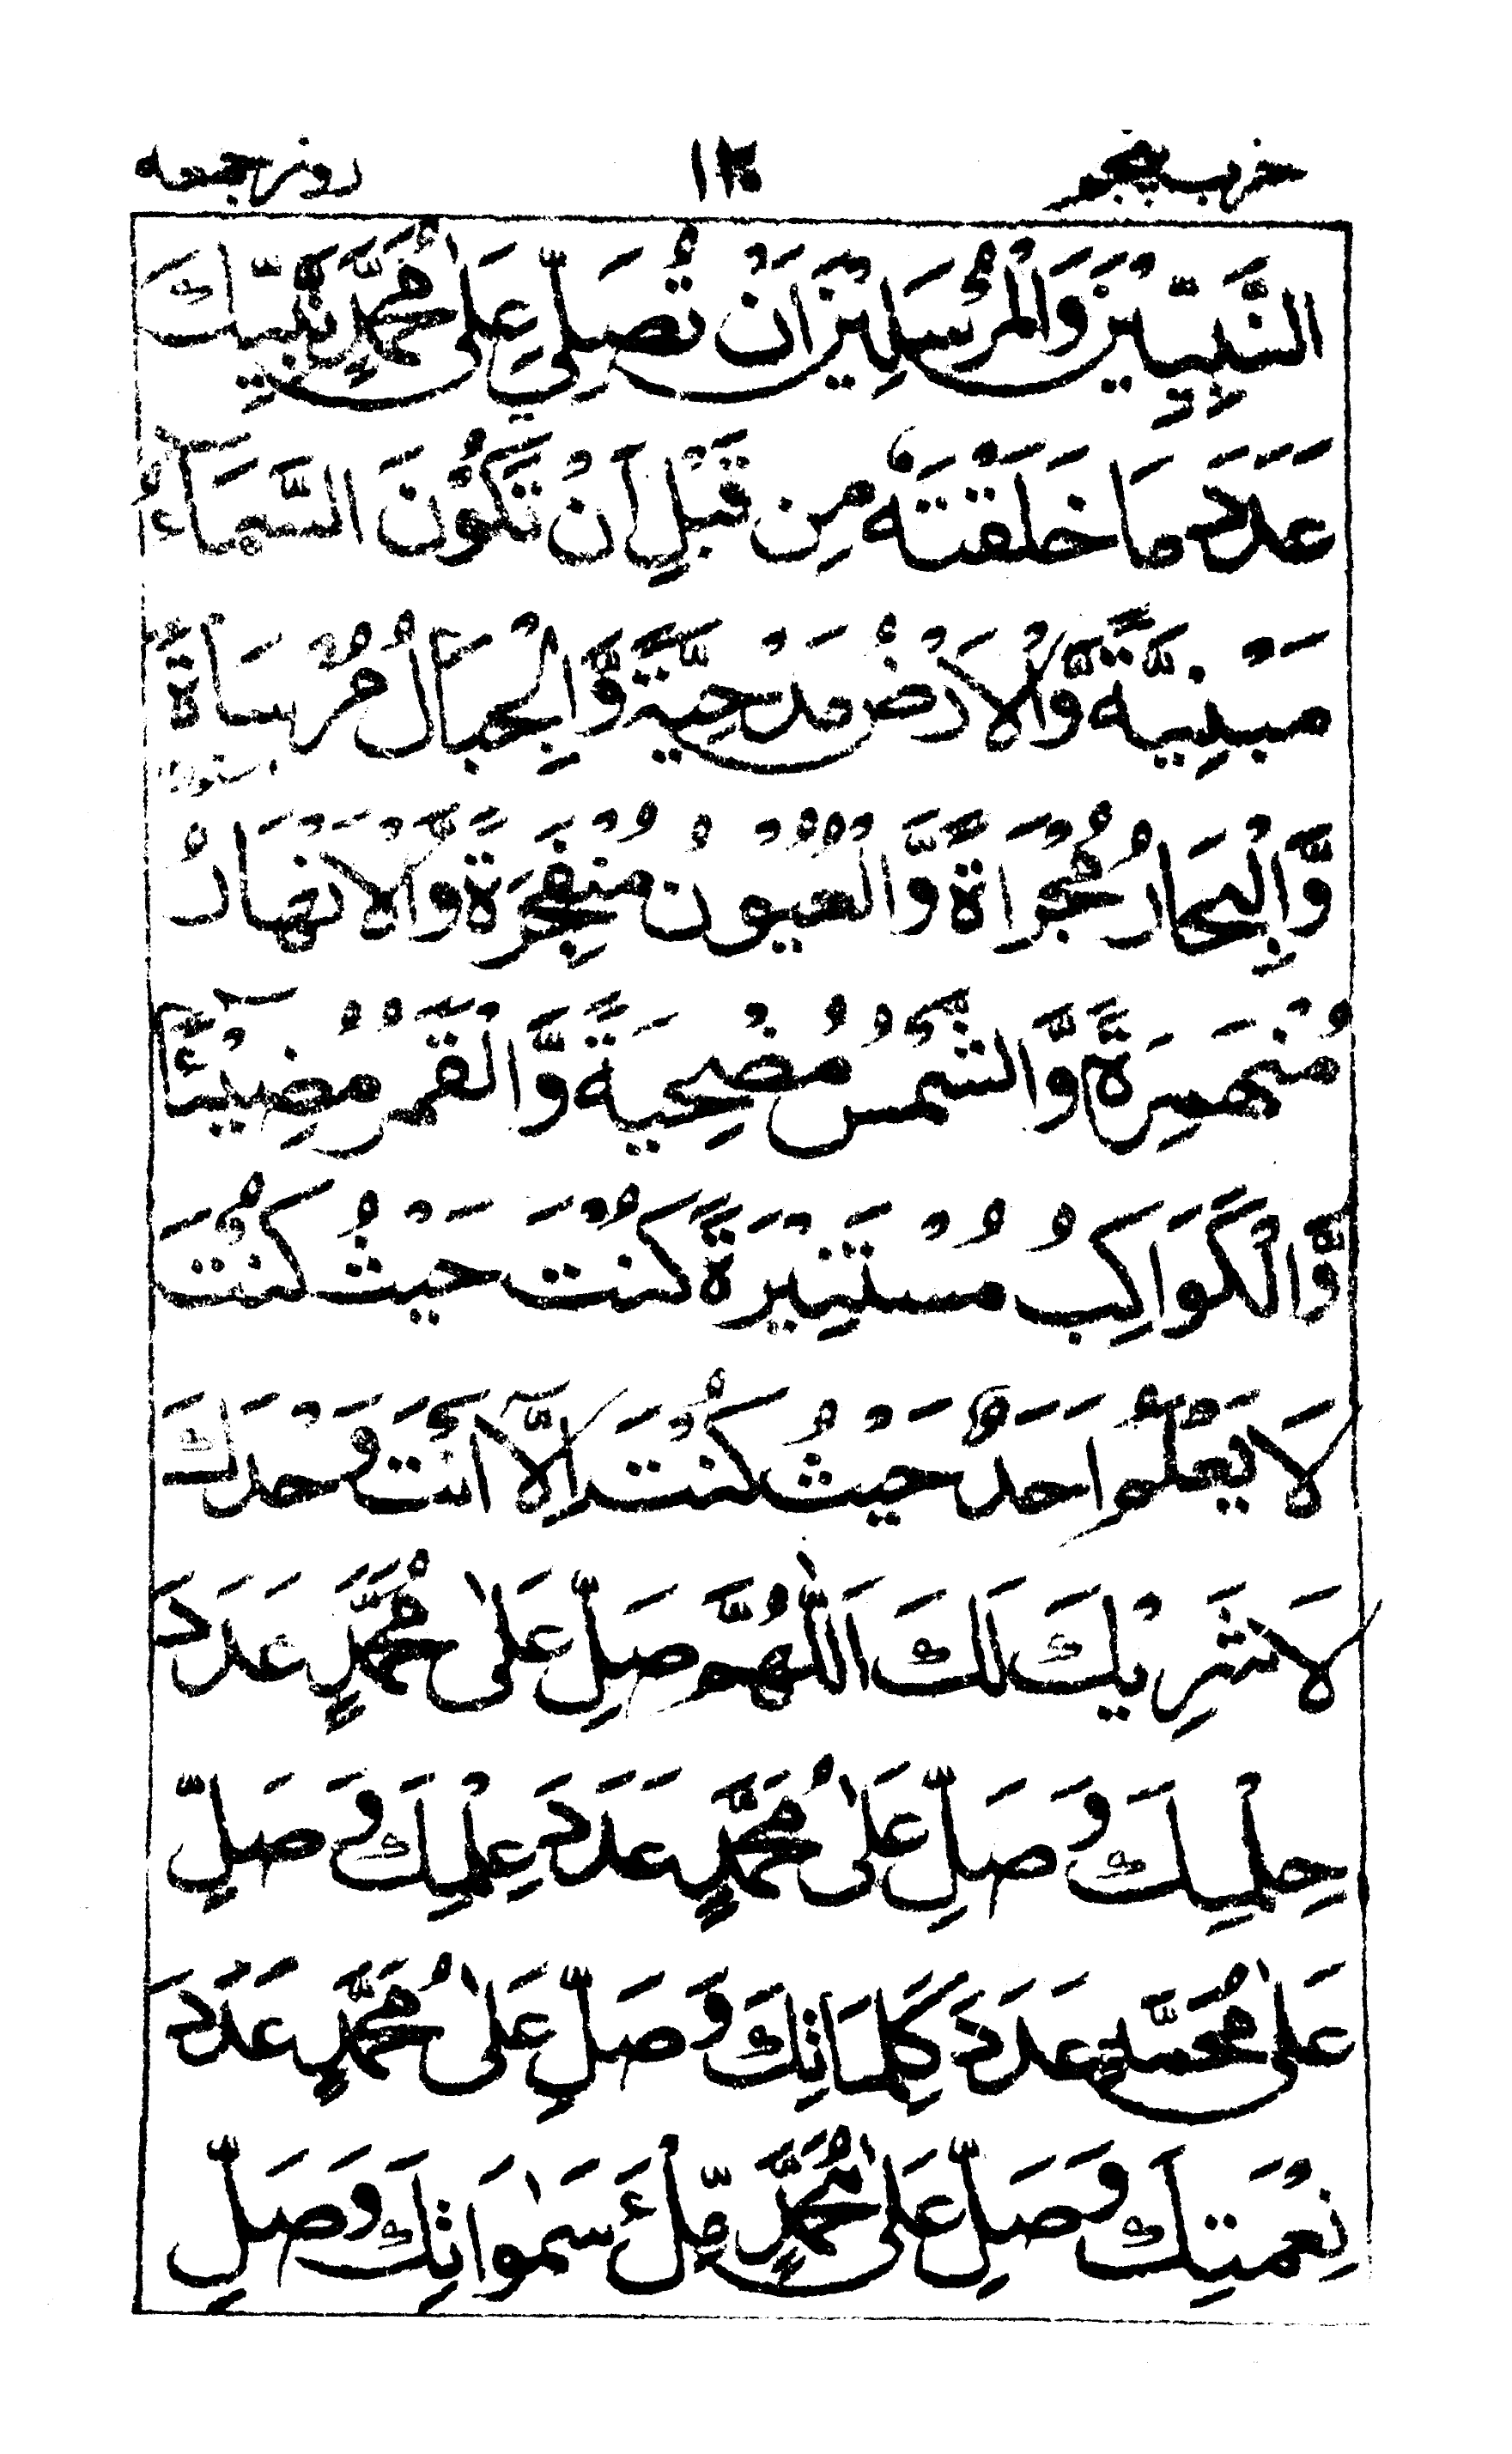 حزب پنجم ١٢٠ روز جمعه
النَّبِيِّيْنَ وَالْمُرْسَلِيْنَ اَنْ تُصَلِّيَ عَلٰى مُحَمَّدٍ نَّبِيِّكَ
عَدَدَ مَا خَلَقْتَهٗ مِنْ قَبْلِ اَنْ تَكُوْنَ السَّمَآءُ
مَبْنِيَّةً وَّالْاَرْضُ مَدْحِيَّةً وَّالْجِبَالُ مُرْسَاةً
وَّالْبِحَارُ مُجْرَاةً وَّالْعُيُوْنُ مُنْفَجِرَةً وَّالْاَنْهَارُ
مُنْهَمِرَةً وَّالشَّمْسُ مُضْحِيَةً وَّالْقَمَرُ مُضِيْئًا
وَّالْكَوَاكِبُ مُسْتَنِيْرَةً كُنْتَ حَيْثُ كُنْتَ
لَا يَعْلَمُ اَحَدٌ حَيْثُ كُنْتَ اِلَّآ اَنْتَ وَحْدَكَ
لَا شَرِيْكَ لَكَ اَللّٰهُمَّ صَلِّ عَلٰى مُحَمَّدٍ عَدَدَ
حِلْمِكَ وَصَلِّ عَلٰى مُحَمَّدٍ عَدَدَ عِلْمِكَ وَصَلِّ
عَلٰى مُحَمَّدٍ عَدَدَ كَلِمَاتِكَ وَصَلِّ عَلٰى مُحَمَّدٍ عَدَدَ
نِعْمَتِكَ وَصَلِّ عَلٰى مُحَمَّدٍ مِّلْءَ سَمٰوَاتِكَ وَصَلِّ